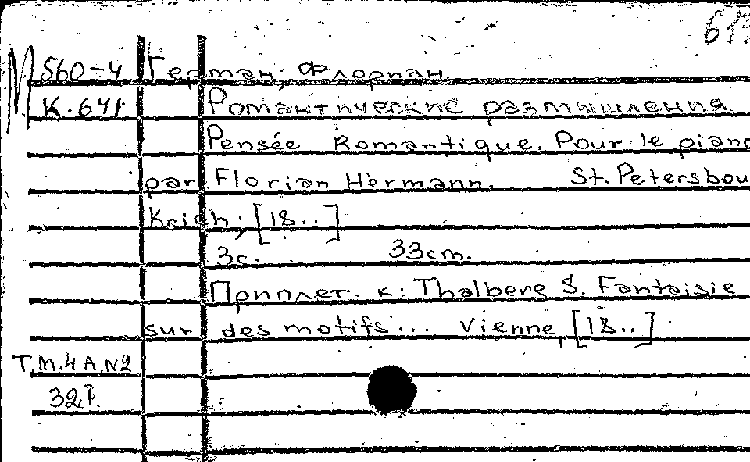 М 560-4 Герман, Флориан
К.641 Романтические размышления.
Pensée Romantique. Pour le piano
par Florian Hermann. St. Petersbou
[18..]
3с. 33cm.
Приплет. к: Thalberg S. Fantaisie
sur des motifs... Vienne, [18..]
Т.М.4 А.N2